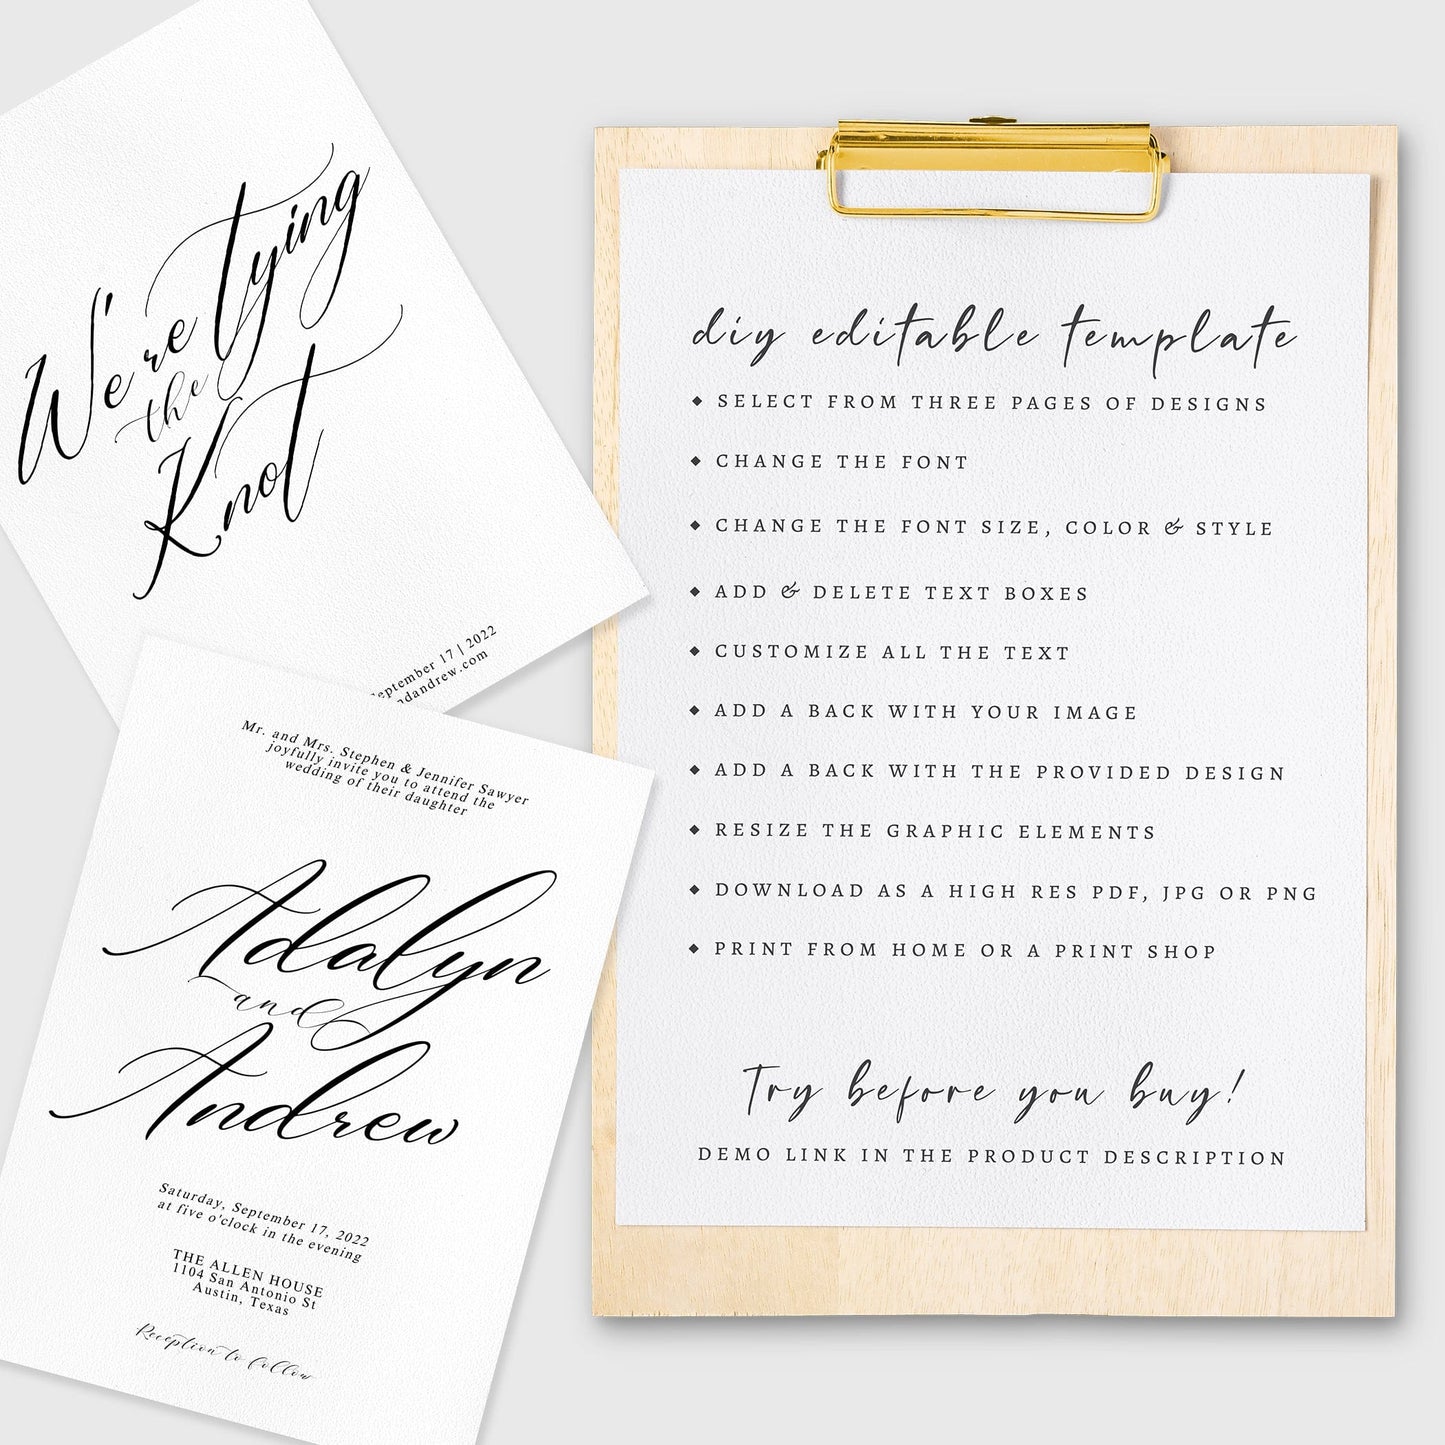 We're tying
the
Knot
September 17 | 2022
Mr. and Mrs. Stephen & Jennifer Sawyer
joyfully invite you to attend the
wedding of their daughter
Adalyn
and
Andrew
Saturday, September 17, 2022
at five o'clock in the evening
THE ALLEN HOUSE
1104 San Antonio St
Austin, Texas
Reception to follow
diy editable template
◆ SELECT FROM THREE PAGES OF DESIGNS
◆ CHANGE THE FONT
◆ CHANGE THE FONT SIZE, COLOR & STYLE
◆ ADD & DELETE TEXT BOXES
◆ CUSTOMIZE ALL THE TEXT
◆ ADD A BACK WITH YOUR IMAGE
◆ ADD A BACK WITH THE PROVIDED DESIGN
◆ RESIZE THE GRAPHIC ELEMENTS
◆ DOWNLOAD AS A HIGH RES PDF, JPG OR PNG
◆ PRINT FROM HOME OR A PRINT SHOP
Try before you buy!
DEMO LINK IN THE PRODUCT DESCRIPTION